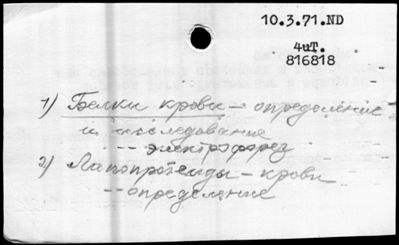 10.3.71.ND
4чТ.
816818
1) Белки крови – определение
и исследование
-- электрофорез
2) Липопротеиды – крови
-- определение